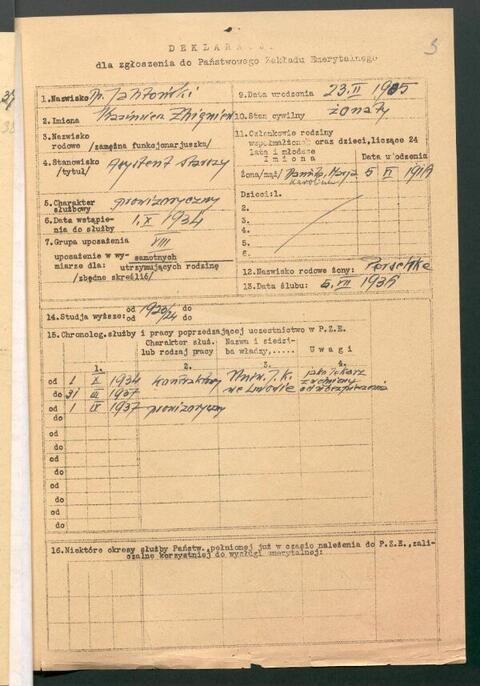 3
DEKLARA
dla zgłoszenia do Państwowego Zakładu Emerytalnego
1. Nazwisko
2. Imiona Kazimierz Zbigniew
3. Nazwisko
rodowe /zamężna funkcjonarjuszka/
4. Stanowisko Asystent starszy
/tytuł/
5. Charakter prowizoryczny
służbowy
6. Data wstąpie- 1. X 1934
nia do służby
7. Grupa uposażenia VIII
uposażenie w wy- samotnych
miarze dla: utrzymujących rodzinę
/zbędne skreślić/
9. Data urodzenia 23. II 1905
10. Stan cywilny żonaty
11. Członkowie rodziny
współmałżonek oraz dzieci, liczące 24
lata i młodsze
Imiona Data urodzenia
żona/mąż/ Maria 5 VI 191
Karolina
Dzieci: 1.
2.
3.
4.
5.
6.
12. Nazwisko rodowe żony:
13. Data ślubu: 6. VII 193
14. Studja wyższe: od do
od do
15. Chronolog. służby i pracy poprzedzającej uczestnictwo w P.Z.E.
Charakter służ. Nazwa i siedzi- Uwagi
lub rodzaj pracy ba władzy,......
1. 2. 3. 4.
od 1 X 1934 kontraktowy Uniw. J. K. jako lekarz
do 31 III 1937 we Lwowie
od 1 IV 1937 prowizoryczny
do
od
do
od
do
od
do
od
do
16. Niektóre okresy służby Państw., pełnionej już w czasie należenia do P.Z.E., zali-
czalne korzystniej do wysługi emerytalnej: